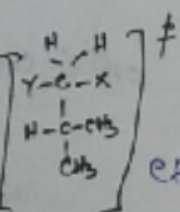 H H ‡
Y-C-X
H-C-CH3
CH3